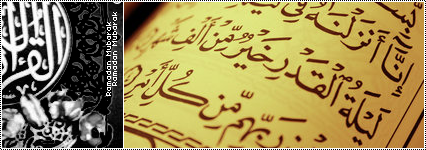 Ramadan Mubarak
Ramadan Mubarak
إِنَّا أَنزَلْنَٰهُ فِى
لَيْلَةُ الْقَدْرِ خَيْرٌ مِّنْ أَلْفِ
رَبِّهِم مِّن كُلِّ أَمْرٍ